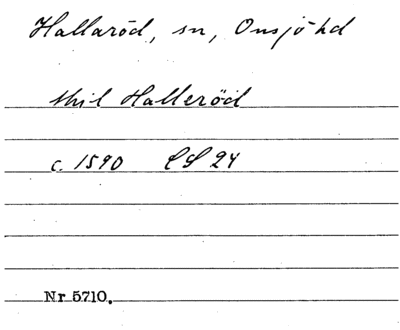 Hallaröd, sn, Onsjö hd
till Halleröd
c. 1590 LS 24
Nr 5710.